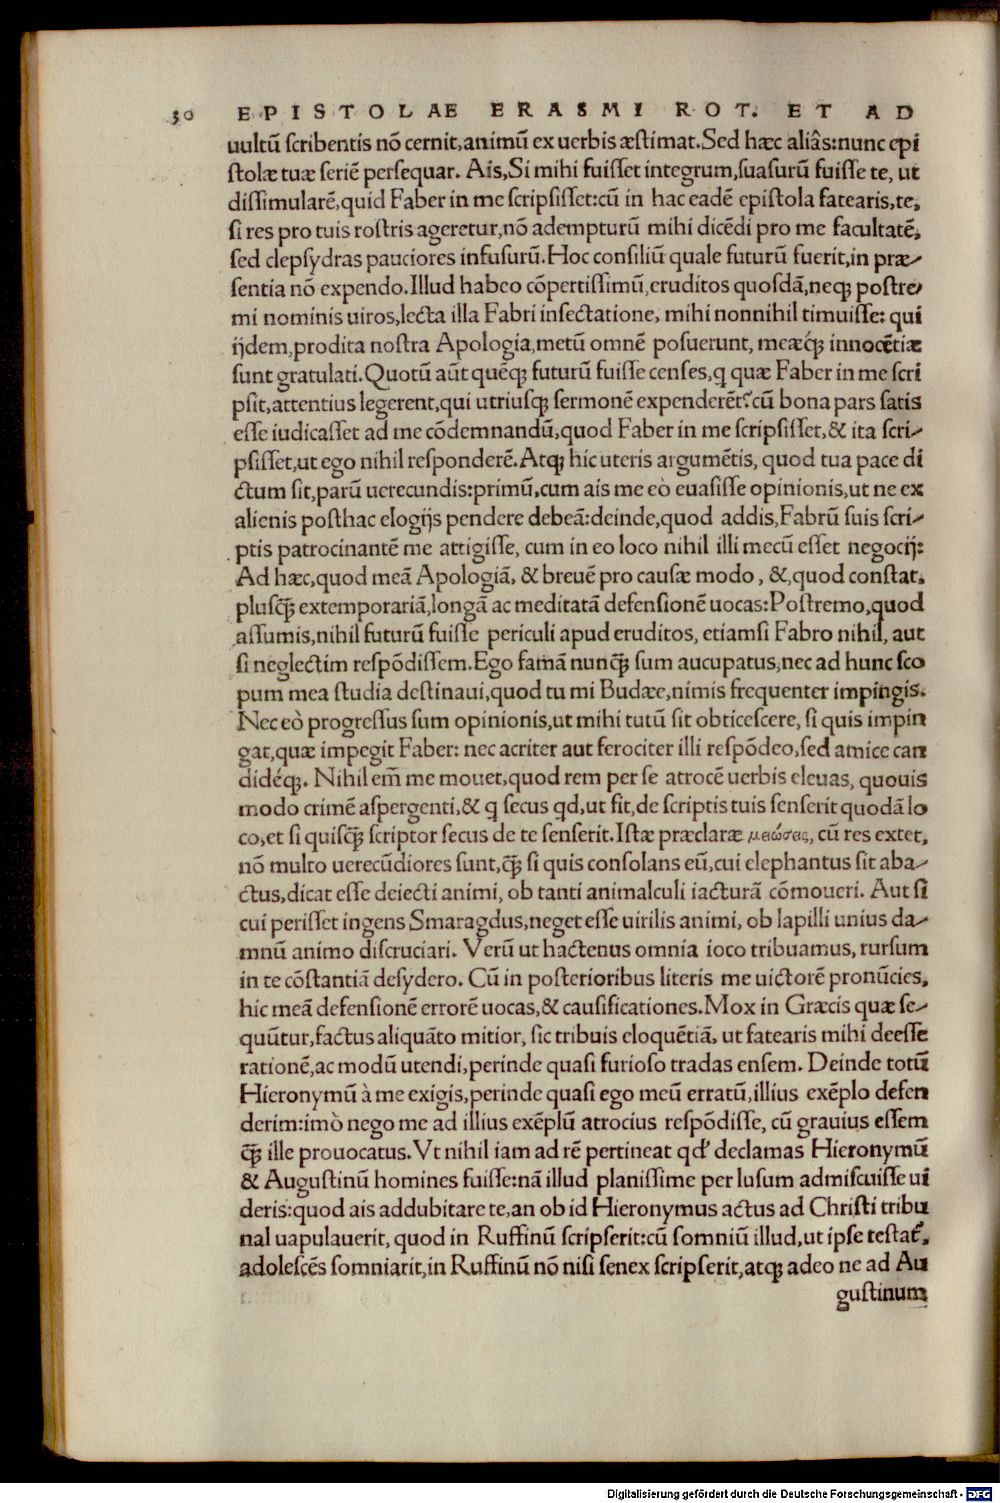 30 EPISTOLAE ERASMI ROT. ET AD
uultū scribentis nō cernit,animū ex uerbis æstimat.Sed hæc aliâs:nunc epi
stolæ tuæ seriē persequar. Ais,Si mihi fuisset integrum,suasurū fuisse te, ut
dissimularē,quid Faber in me scripsisset:cū in hac eadē epistola fatearis,te,
si res pro tuis rostris ageretur,nō adempturū mihi dicēdi pro me facultatē,
sed clepsydras pauciores infusurū.Hoc consiliū quale futurū fuerit,in præ-
sentia nō expendo.Illud habeo cōpertissimū,eruditos quosdā,neqꝫ postre-
mi nominis uiros,lecta illa Fabri insectatione, mihi nonnihil timuisse: qui
ijdem,prodita nostra Apologia,metū omnē posuerunt, meæq́ꝫ innocētiæ
sunt gratulati.Quotū aūt quēqꝫ futurū fuisse censes,q quæ Faber in me scri
psit,attentius legerent,qui utriusqꝫ sermonē expenderēt?cū bona pars satis
esse iudicasset ad me cōdemnandū,quod Faber in me scripsisset,& ita scri-
psisset,ut ego nihil responderē.Atqꝫ hic uteris argumētis, quod tua pace di
ctum sit,parū uerecundis:primū,cum ais me eò euasisse opinionis,ut ne ex
alienis posthac elogijs pendere debeā:deinde,quod addis,Fabrū suis scri-
ptis patrocinantē me attigisse, cum in eo loco nihil illi mecū esset negocij:
Ad hæc,quod meā Apologiā, & breuē pro causæ modo, &,quod constat,
plusq̄ꝫ extemporariā,longā ac meditatā defensionē uocas:Postremo,quod
assumis,nihil futurū fuisse periculi apud eruditos, etiamsi Fabro nihil, aut
si neglectim respōdissem.Ego famā nunq̄ꝫ sum aucupatus,nec ad hunc sco
pum mea studia destinaui,quod tu mi Budæe,nimis frequenter impingis.
Nec eò progressus sum opinionis,ut mihi tutū sit obticescere, si quis impin
gat,quæ impegit Faber: nec acriter aut ferociter illi respōdeo,sed amice can
didéqꝫ. Nihil em̄ me mouet,quod rem per se atrocē uerbis eleuas, quouis
modo crimē aspergenti,& q secus qd,ut fit,de scriptis tuis senserit quodā lo
co,et si quisq̄ꝫ scriptor secus de te senserit.Istæ præclaræ μειώσεις, cū res extet,
nō multo uerecūdiores sunt,q̄ꝫ si quis consolans eū,cui elephantus sit aba-
ctus,dicat esse deiecti animi, ob tanti animalculi iacturā cōmoueri. Aut si
cui perisset ingens Smaragdus,neget esse uirilis animi, ob lapilli unius da-
mnū animo discruciari. Verū ut hactenus omnia ioco tribuamus, rursum
in te cōstantiā desydero. Cū in posterioribus literis me uictorē pronūcies,
hic meā defensionē errorē uocas,& causificationes.Mox in Græcis quæ se-
quūtur,factus aliquāto mitior, sic tribuis eloquētiā, ut fatearis mihi deesse
rationē,ac modū utendi,perinde quasi furioso tradas ensem. Deinde totū
Hieronymū à me exigis,perinde quasi ego meū erratū,illius exēplo defen
derim:imò nego me ad illius exēplū atrocius respōdisse, cū grauius essem
q̄ꝫ ille prouocatus. Vt nihil iam ad rē pertineat qd' declamas Hieronymū
& Augustinū homines fuisse:nā illud planissime per lusum admiscuisse ui
deris:quod ais addubitare te,an ob id Hieronymus actus ad Christi tribu
nal uapulauerit, quod in Ruffinū scripserit:cū somniū illud,ut ipse testat᷑,
adolescēs somniarit,in Ruffinū nō nisi senex scripserit,atqꝫ adeo ne ad Au
gustinum
Digitalisierung gefördert durch die Deutsche Forschungsgemeinschaft - DFG